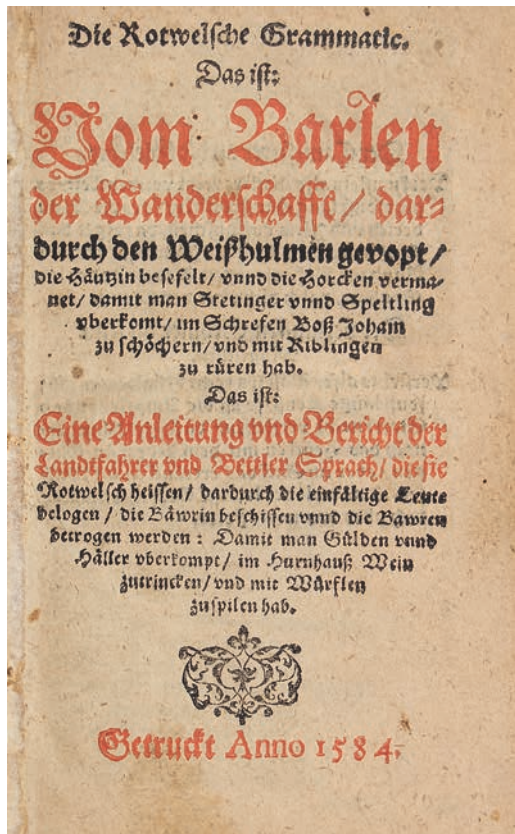 Die Rotwelsche Grammatic.
Das ist:
Vom Barlen
der Wanderschafft / dar-
durch den Weißhulmen gevopt /
die Häutzin besefelt / vnnd die Horcken verma-
net / damit man Stetinger vnnd Speltling
vberkomt / im Schrefen Boß Joham
zu schöchern / vnd mit Riblingen
zu rüren hab.
Das ist:
Eine Anleitung vnd Bericht der
Landtfahrer vnd Bettler Sprach / die sie
Rotwelsch heissen / dardurch die einfältige Leute
belogen / die Bäwrin beschissen vnnd die Bawren
betrogen werden : Damit man Gülden vnnd
Häller vberkompt / im Hurnhauß Wein
zutrincken / vnd mit Würflen
zuspilen hab.
Getruckt Anno 1584.